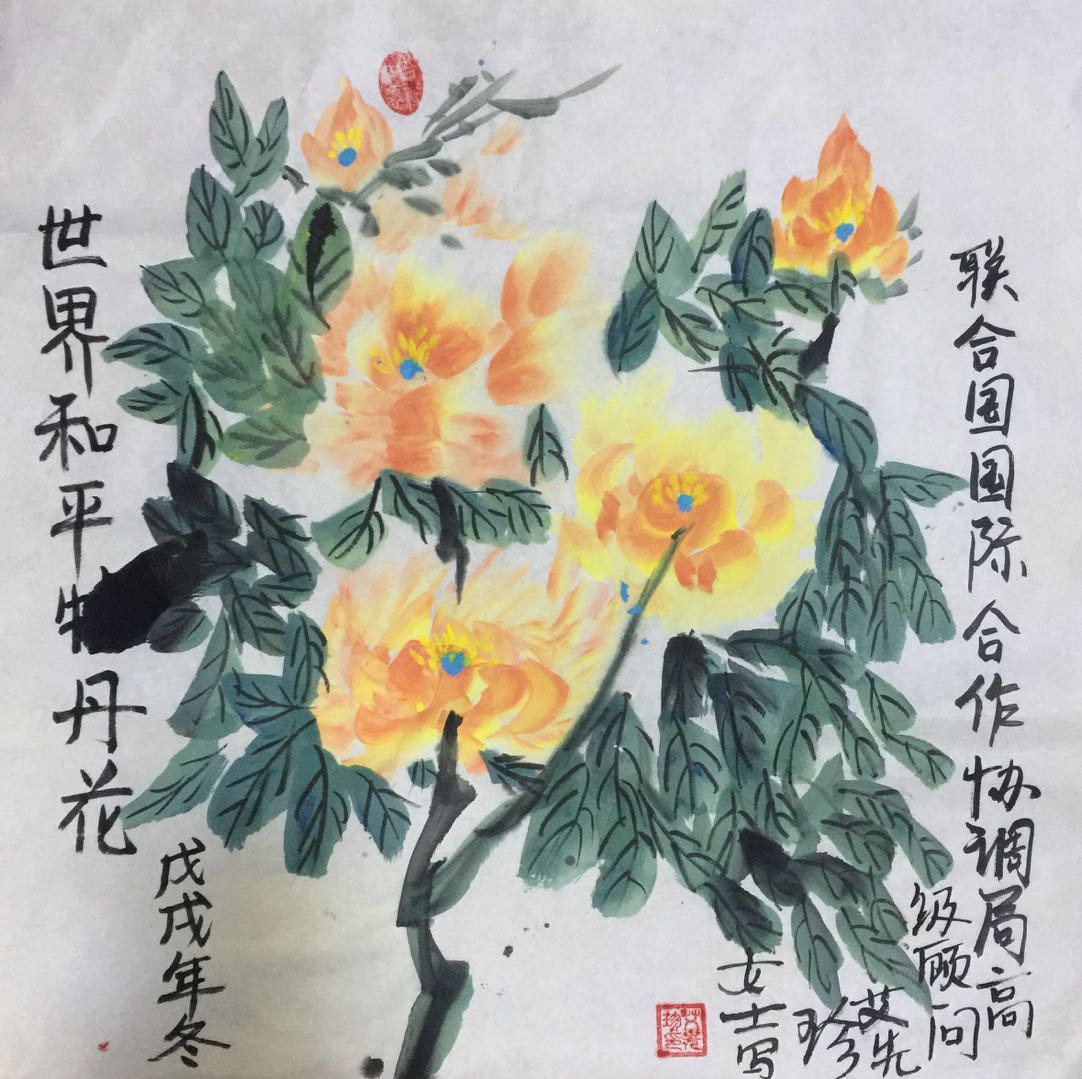 联合国国际合作协调局高
级顾问
艾先
珍
女士写
戊戌年冬
世界和平牡丹花